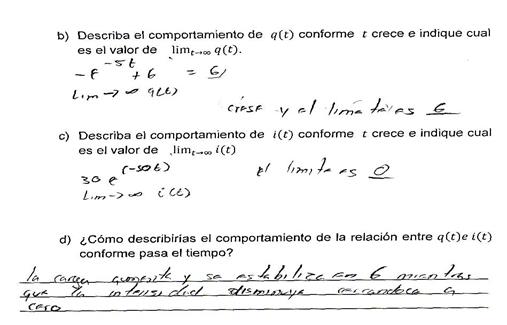 b) Describa el comportamiento de q(t) conforme t crece e indique cual
es el valor de lim t→∞ q(t).
-e^-5t + 6 = 6
Lim → ∞ q(t)
crece y el limite es 6
c) Describa el comportamiento de i(t) conforme t crece e indique cual
es el valor de lim t→∞ i(t)
30 e^(-50t) el limite es 0
Lim → ∞ i(t)
d) ¿Cómo describirías el comportamiento de la relación entre q(t)e i(t)
conforme pasa el tiempo?
la carga aumenta y se estabiliza en 6 mientras
que la intensidad disminuye acercandoce a
cero